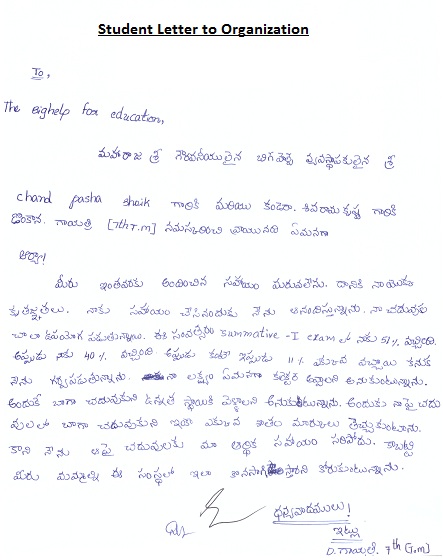 Student Letter to Organization
To,
The Bighelp for education,
మహారాజ శ్రీ గౌరవనీయులైన బిగ్ హెల్ప్ వ్యవస్థాపకులైన శ్రీ
chand pasha shaik గారికి మరియు కండెరా. శివరామ కృష్ణ గారికి
డొంకాన. గాయత్రి [7th T.m] నమస్కరించి వ్రాయునది ఏమనగా
ఆర్యా!
మీరు ఇంతవరకు అందించిన సహాయం మరువలేను. దానికి నా యొక్క
కృతజ్ఞతలు. నాకు సహాయం చేసినందుకు నేను ఆనందిస్తున్నాను. నా చదువుకు
చాలా ఉపయోగ పడుతున్నాయి. ఈ సంవత్సరం Summative -I exam లో నాకు 51% వచ్చింది.
అప్పుడు నాకు 40% వచ్చింది అప్పుడు కంటే ఇప్పుడు 11% ఎక్కువ వచ్చాయి కనుక
నేను గర్వపడుతున్నాను. నా లక్ష్యం ఏమనగా కలెక్టర్ అవ్వాలి అనుకుంటున్నాను.
అందుకే బాగా చదువుకుని ఉన్నత స్థాయికి వెళ్ళాలని అనుకుంటున్నాను. అందుకు నా పై చదు
వులలో బాగా చదువుకుని ఇంకా ఎక్కువ శాతం మార్కులు తెచ్చుకుంటాను.
కాని నేను ఆ పై చదువులకు మా ఆర్థిక సహాయం సరిపోదు. కాబట్టి
మీరు మమ్మల్ని ఈ సంస్థలో ఇలా కొనసాగిస్తారని కోరుకుంటున్నాను.
ధన్యవాదములు!
ఇట్లు
D. గాయత్రి. 7th (T.m)